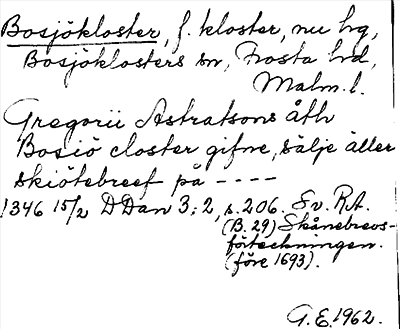 Bosjökloster, f. kloster, nu hg,
Bosjöklosters sn, Frosta hd,
Malm. l.
Gregorii Astratsons åth
Bosiö closter gifne, sälje äller
skiötebreef på ----
1346 15/2 DDan 3:2, s. 206. Sv. R.A.
(B. 29) Skånebrevs-
förteckningen.
(före 1693).
G.E. 1962.